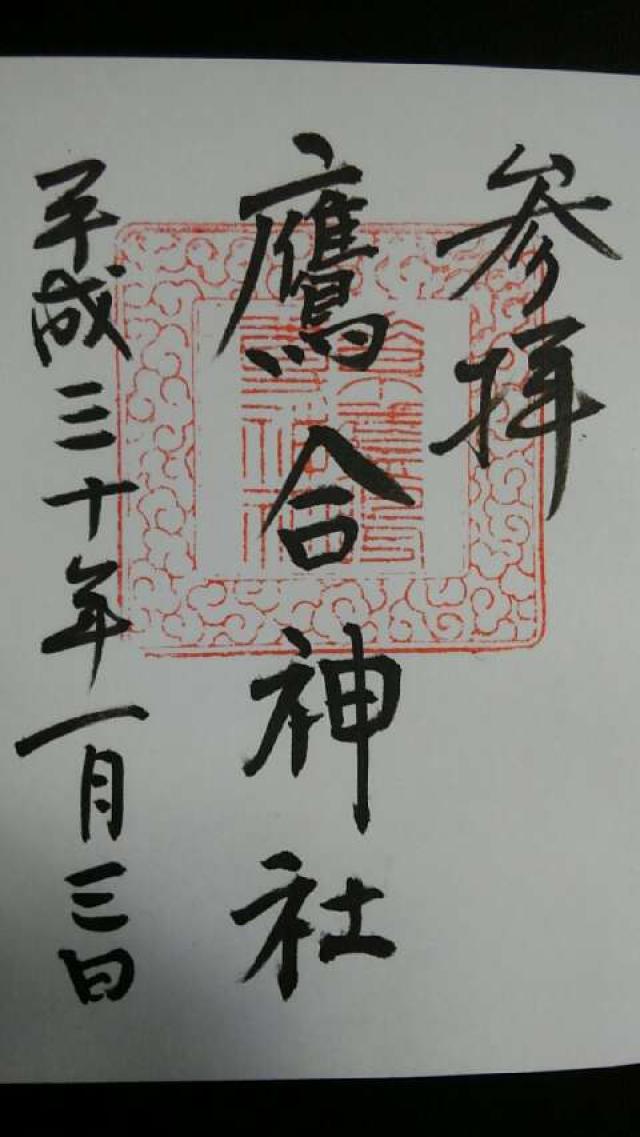 参拝
鷹合神社
平成三十年一月三日